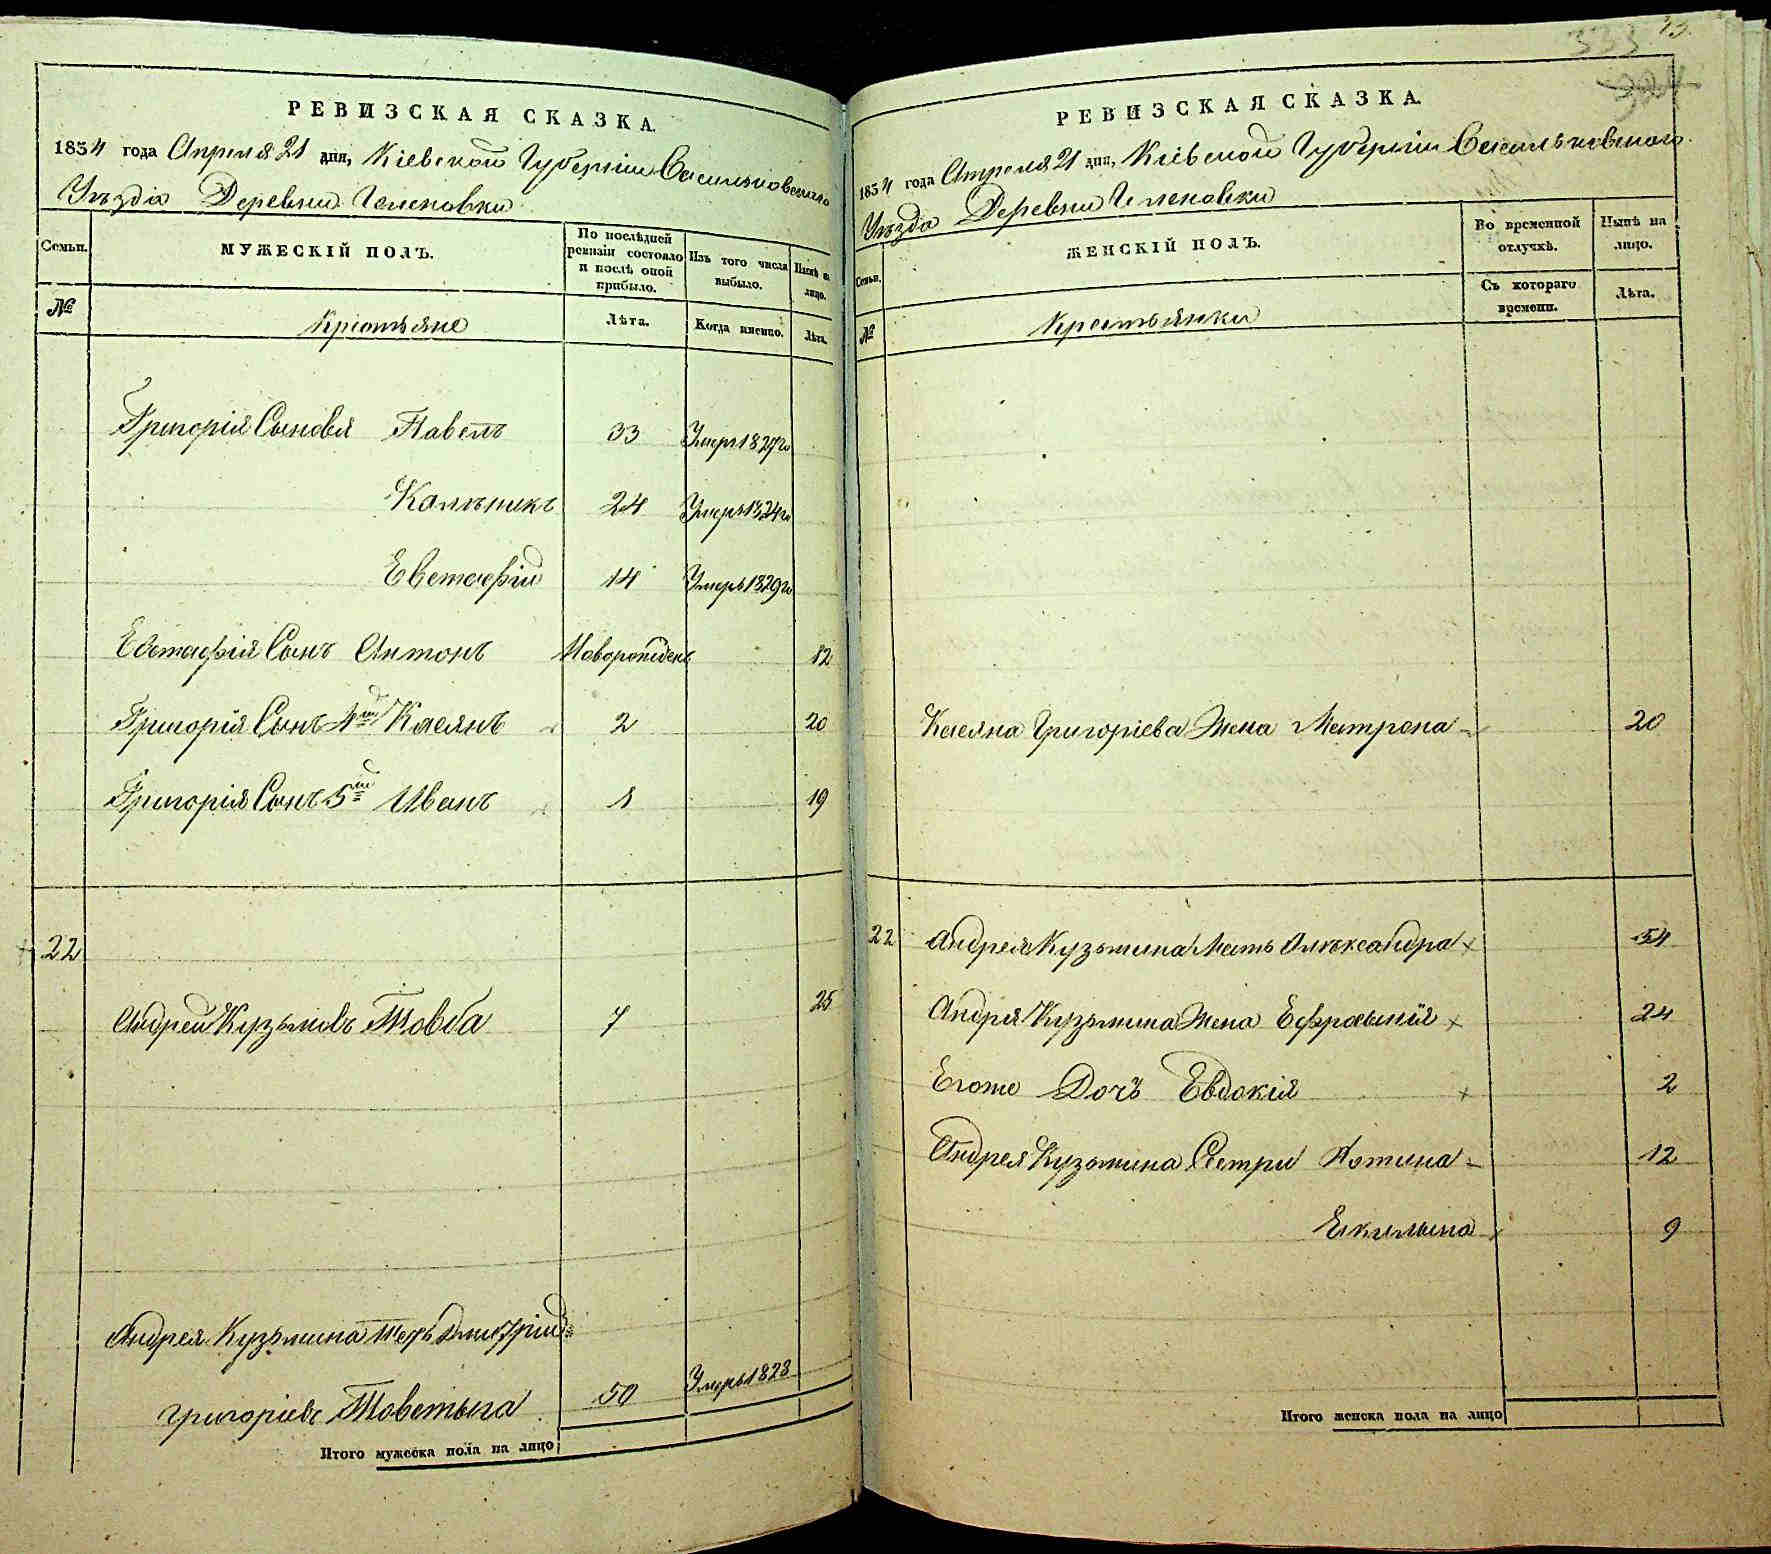 333 13
РЕВИЗСКАЯ СКАЗКА.
1834 года Апреля 21 дня, Кіевской Губерніи Васильковского
Уѣзда Деревни
Семьи. МУЖЕСКІЙ ПОЛЪ. По послѣдней ревизіи состояло и послѣ оной прибыло. Изъ того числа выбыло. Нынѣ на лицо.
№ Крiстьяне Лѣта. Когда именно. Лѣта.
Григорія Сыновя Павелъ 33 Умеръ 1827го
24 Умеръ 1824го
Евстафій 14 Умеръ 1829го
Евстафія Сынъ Антонъ Новорожденъ 12
Григорія Сынъ 4й Касянъ 2 20
Григорія Сынъ 5й Иванъ 1 19
22
Андрей Кузьмовъ Товба 7 25
Андрея Кузьмина Дмитрій
Григоріевъ 50 Умеръ 1823
Итого мужеска пола на лицо
РЕВИЗСКАЯ СКАЗКА.
1834 года Апреля 21 дня, Кіевской Губерніи Васильковского
Уѣзда Деревни
Семьи. ЖЕНСКІЙ ПОЛЪ. Во временной отлучкѣ. Нынѣ на лицо.
№ Крестьянки Съ котораго времени. Лѣта.
Касяна Григоріева Жена Матрона 20
22 Андрея Кузьмина Мать Алѣксандра 54
Андрея Кузьмина Жена Ефросынія 24
Егоже Дочъ Евдокія 2
Андрея Кузьмина Сестри 12
Екилына 9
Итого женска пола на лицо